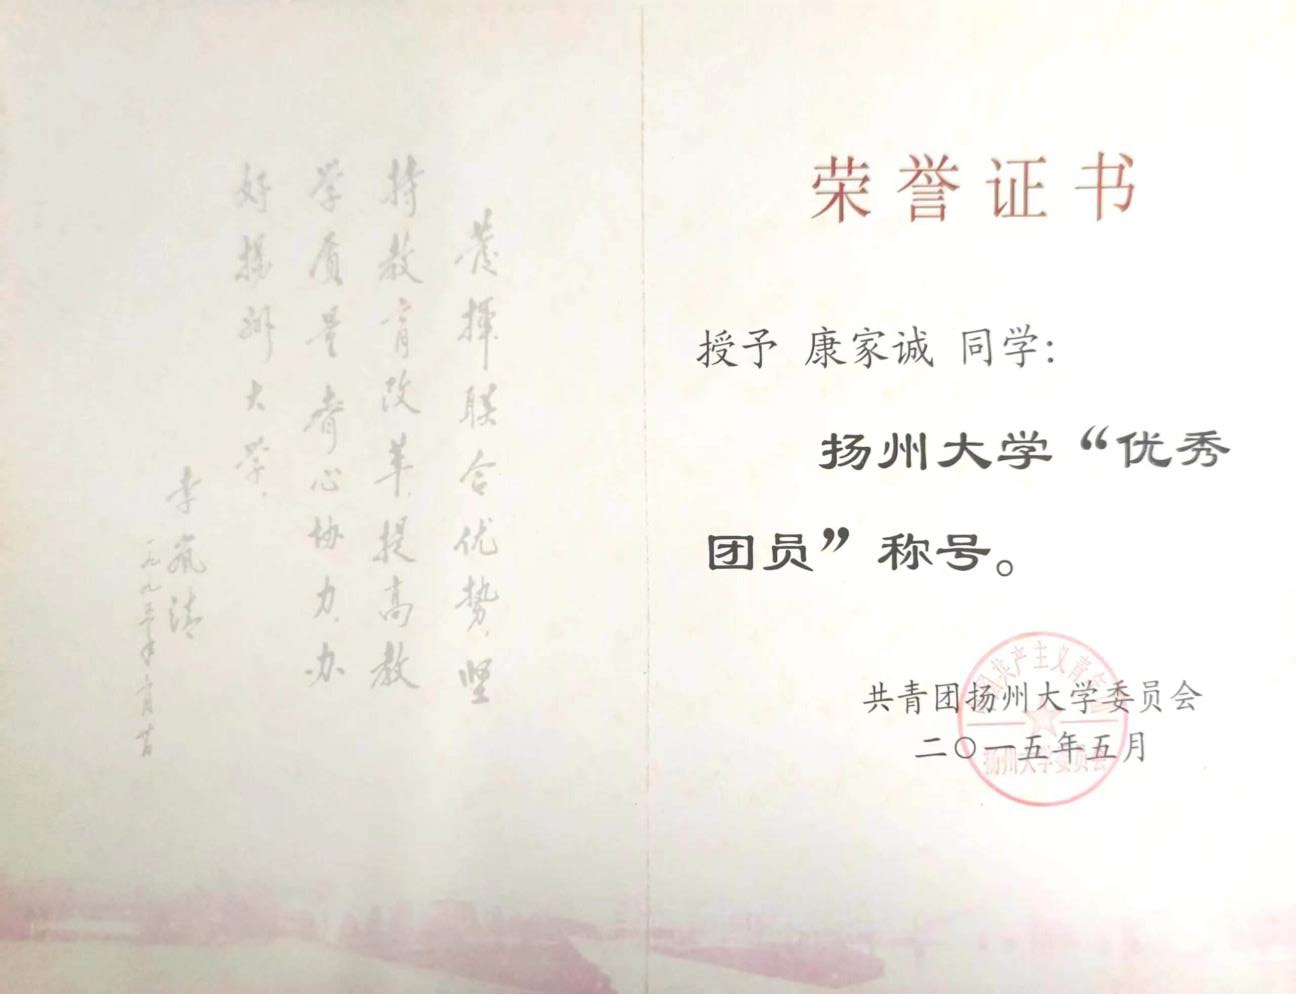 发挥联合优势，坚
持教育改革，提高教
学质量，齐心协力，办
好扬州大学。
李岚清
一九九五年
荣誉证书
授予 康家诚 同学：
扬州大学“优秀
团员”称号。
共青团扬州大学委员会
二〇一五年五月
共产主义青年
扬州大学委员会